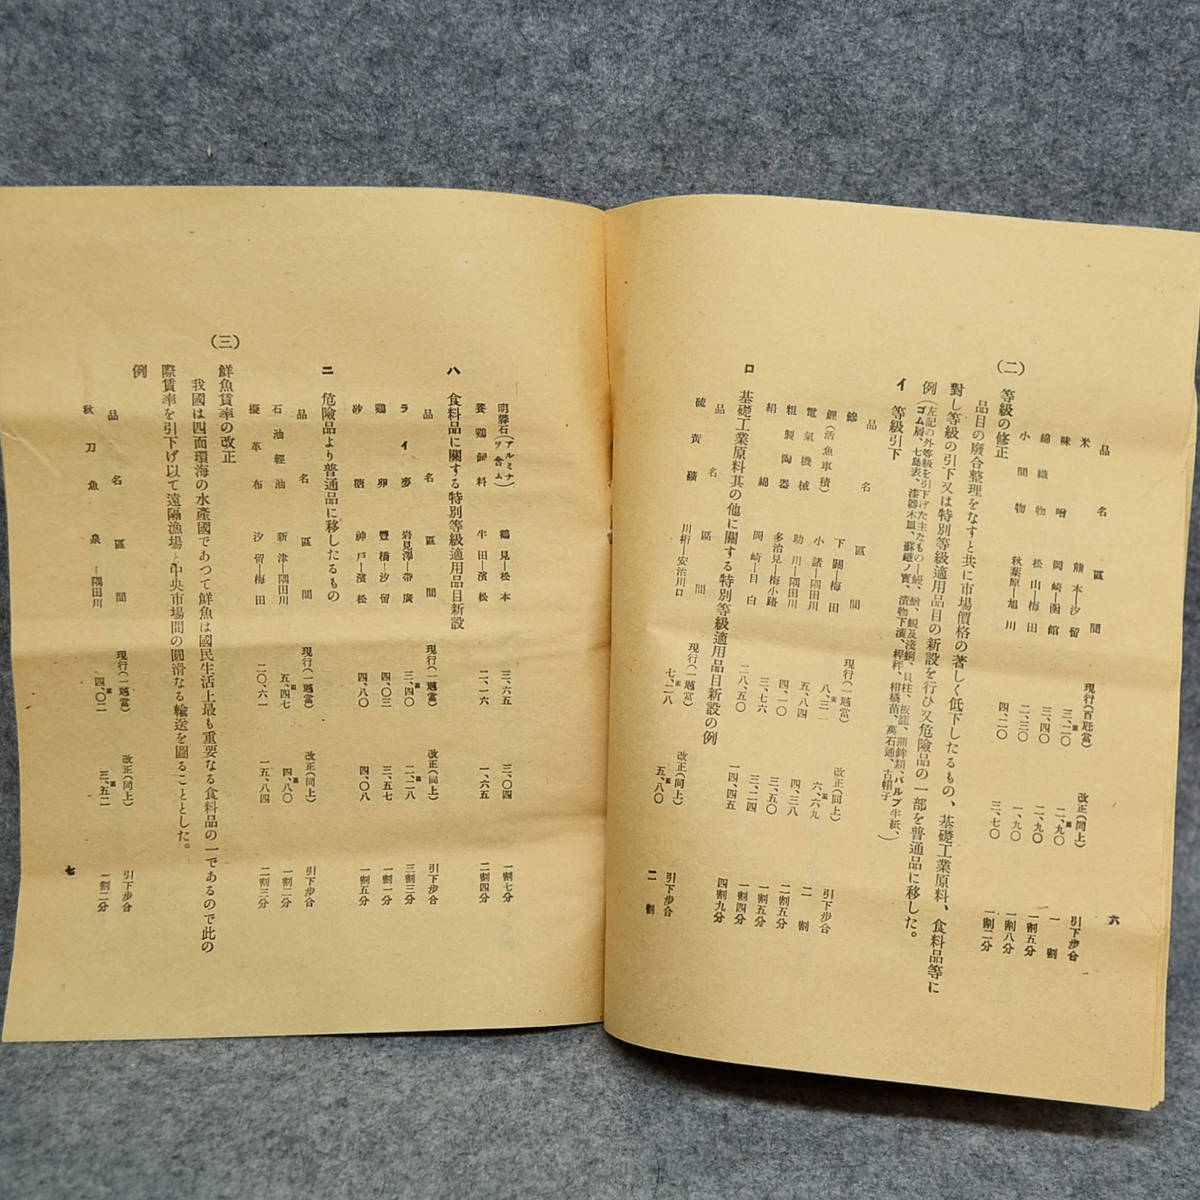 六
品名 區間 現行(百瓩當) 改正(同上) 引下步合
米 熊本―汐留 三、二〇 二、九〇 一割
味噌 岡崎―函館 三、四〇 二、九〇 一割五分
綿織物 松山―梅田 二、三〇 一、九〇 一割八分
小間物 秋葉原―旭川 四、二〇 三、七〇 一割二分
(二) 等級の修正
品目の廢合整理をなすと共に市場價格の著しく低下したるもの、基礎工業原料、食料品等に
對し等級の引下又は特別等級適用品目の新設を行ひ又危險品の一部を普通品に移した。
例
イ 等級引下
品名 區間 現行(一瓲當) 改正(同上) 引下步合
下關―梅田 六、六九 二割
鯉(活魚車積) 小諸―隅田川 五、八四 四、三八 二割五分
電氣機械 助川―隅田川 四、一〇 三、五〇 一割五分
粗製陶器 多治見―梅小路 三、七六 三、二四 一割四分
絹綿 岡崎―目白 二八、五〇 一四、四五 四割九分
ロ 基礎工業原料其の他に關する特別等級適用品目新設の例
品名 區間 現行(一瓲當) 改正(同上) 引下步合
硫黃礦 川桁―安治川口 七、二八 五、八〇 二割
明礬石(アルミナヲ含ム) 鶴見―松本 三、六五 三、〇四 一割七分
養鷄飼料 半田―濱松 二、一六 一、六五 二割四分
ハ 食料品に關する特別等級適用品目新設
品名 區間 現行(一瓲當) 改正(同上) 引下步合
ライ麥 岩見澤―帶廣 三、四〇 二、二八 三割三分
鷄卵 豐橋―汐留 四、〇三 三、五七 一割一分
砂糖 神戶―濱松 四、八〇 四、〇八 一割五分
ニ 危險品より普通品に移したるもの
品名 區間 現行(一瓲當) 改正(同上) 引下步合
石油輕油 新津―隅田川 五、四七 四、八〇 一割二分
擬革布 汐留―梅田 二〇、六一 一五、八四 二割三分
(三) 鮮魚賃率の改正
我國は四面環海の水產國であつて鮮魚は國民生活上最も重要なる食料品の一であるので此の
際賃率を引下げ以て遠隔漁場と中央市場間の圓滑なる輸送を圖ることとした。
例
品名 區間 現行(一瓲當) 改正(同上) 引下步合
秋刀魚 泉―隅田川 四、〇二 三、五二 一割二分
七